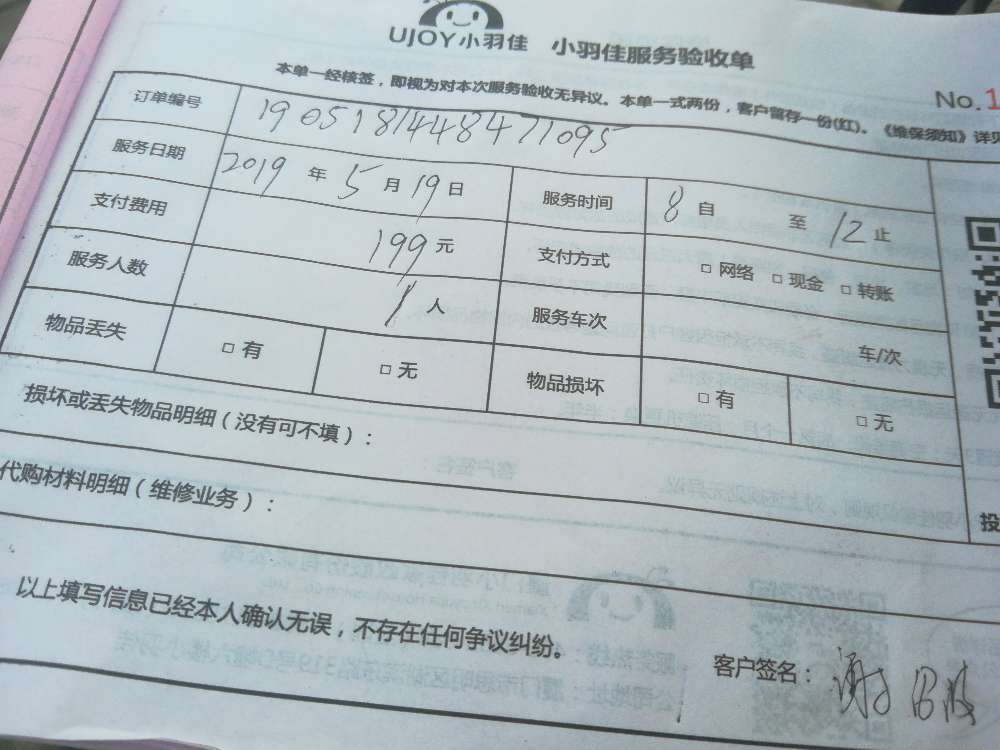 UJOY小羽佳 小羽佳服务验收单
本单一经核签，即视为对本次服务验收无异议。本单一式两份，客户留存一份(红)。《维保须知》详见
No.1
订单编号 190518144847 1095
服务日期 2019 年 5 月 19 日 服务时间 8 自 至 12 止
支付费用 199 元 支付方式 □ 网络 □ 现金 □ 转账
服务人数 1 人 服务车次 车/次
物品丢失 □ 有 □ 无 物品损坏 □ 有 □ 无
损坏或丢失物品明细（没有可不填）：
代购材料明细（维修业务）：
投
以上填写信息已经本人确认无误，不存在任何争议纠纷。
客户签名：谢